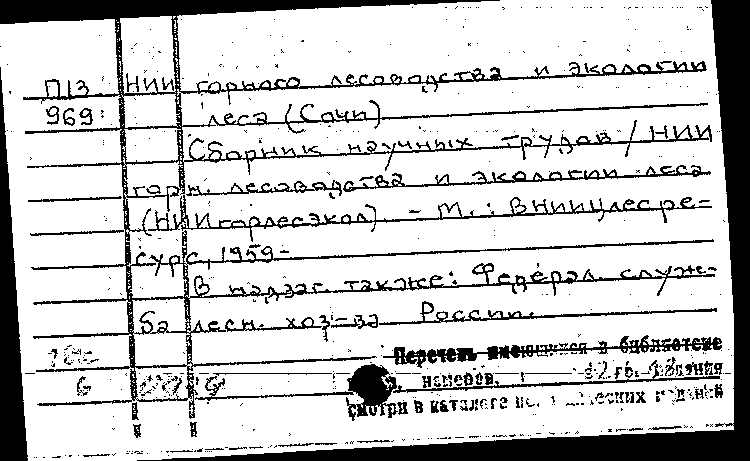 П13 НИИ горного лесоводства и экологии
969: леса (Сочи)
Сборник научных трудов / НИИ
горн. лесоводства и экологии леса
(НИИгорлесэкол). – М.: ВНИИЦлесре-
сурс, 1959-
В надзаг. также: Федерал. служ-
ба лесн. хоз-ва России.
Перечень имеющихся в библиотеке
6 номеров,
смотри в каталоге